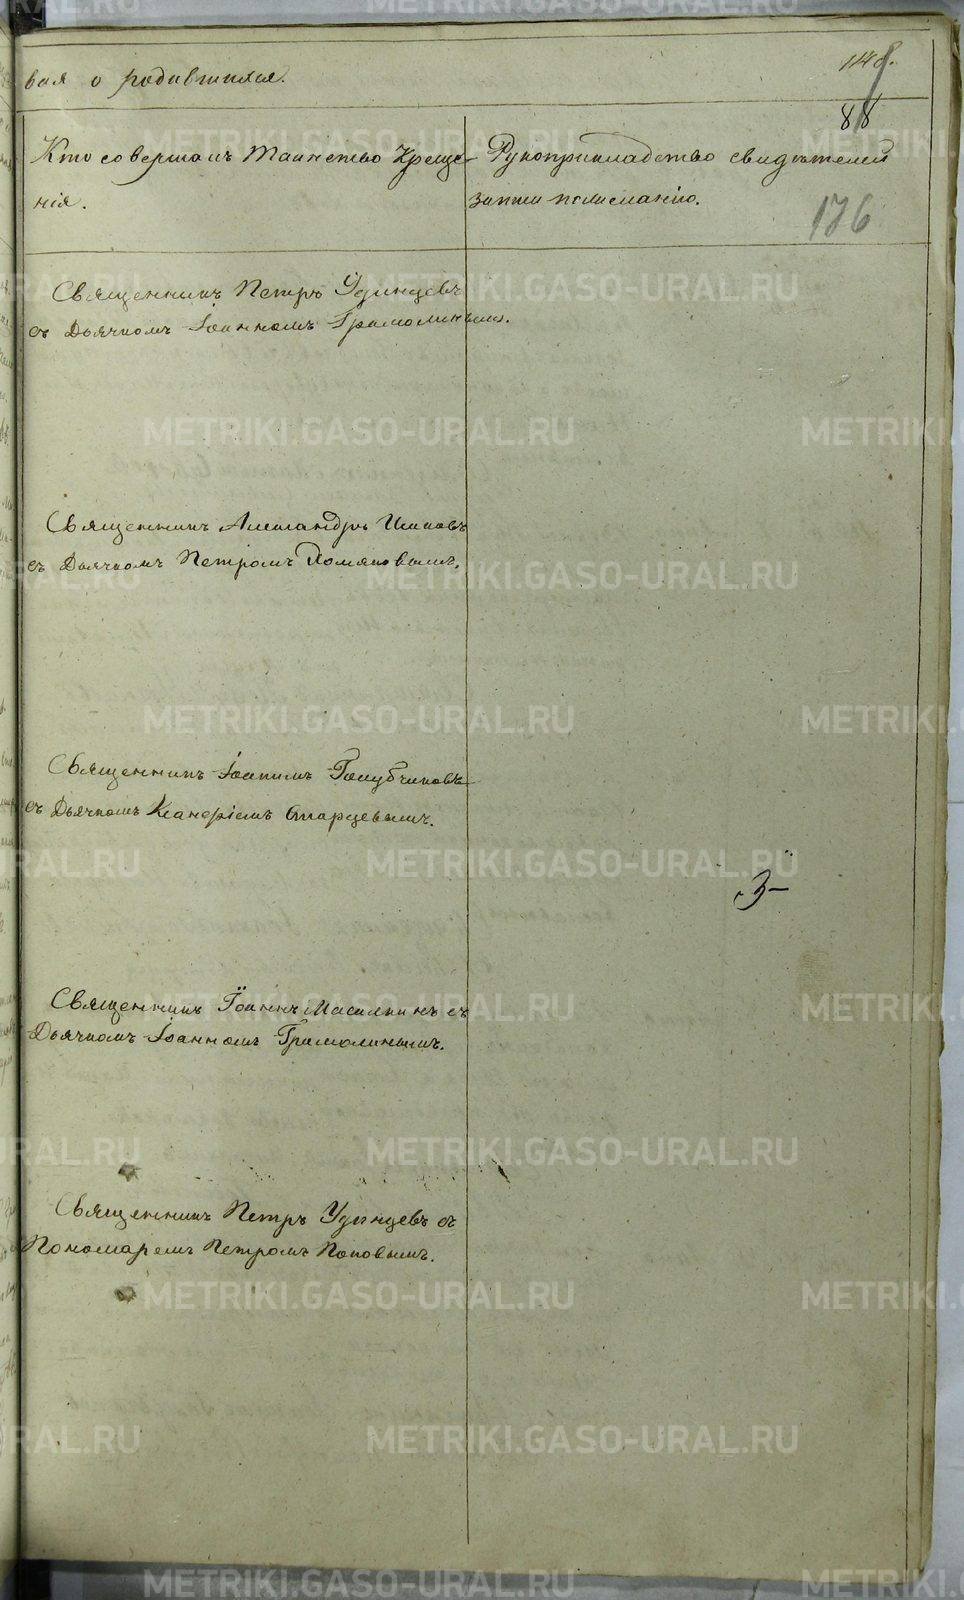 вая о родившихся.
148.
88
Кто совершалъ Таинство Креще-
нія.
Рукоприкладство свидѣтелей
записи по желанію.
176
Священникъ Петръ Удинцевъ
съ Дьячкомъ Іоанномъ Грамолинымъ.
Священникъ Александръ Поповъ
съ Дьячкомъ Петромъ Хомяковымъ.
Священникъ Іоакимъ Голубчиковъ
съ Дьячкомъ Старцевымъ.
Священникъ Іоаннъ съ
Дьячкомъ Іоанномъ Грамолинымъ.
Священникъ Петръ Удинцевъ съ
Пономаремъ Петромъ Поповымъ.
METRIKI.GASO-URAL.RU